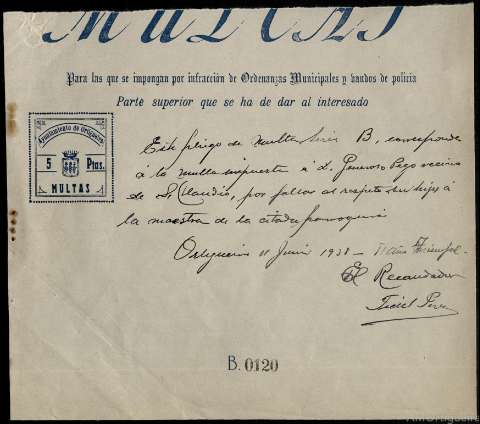 MULTAS
Para las que se impongan por infracción de Ordenanzas Municipales y bandos de policía
Parte superior que se ha de dar al interesado
Ayuntamiento de Ortigueira
5 Ptas.
MULTAS
Este pliego de multa Serie B, corresponde
a la multa impuesta a d. Generoso Pego vecino
de S. Claudio, por faltar al respeto su hijo a
la maestra de la citada parroquia
Ortigueira 11 Junio 1938 — II año Triunfal.
El Recaudador
Fidel
B. 0120